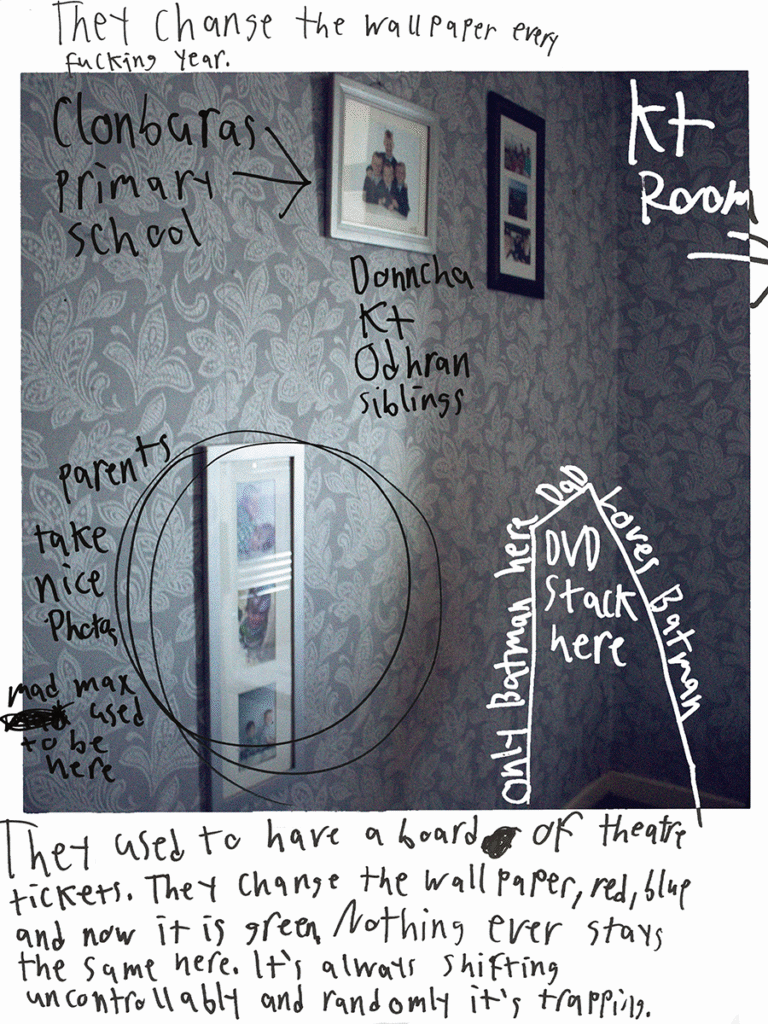 They change the wallpaper every
fucking year.
Clonbaras
primary
school
Kt
Room
Donncha
Kt
Odhran
siblings
parents
take
nice
Photos
mad max
used
to be
here
Only Batman here
Dad
Loves Batman
DVD
Stack
here
They used to have a board of theatre
tickets. They change the wallpaper, red, blue
and now it is green. Nothing ever stays
the same here. It's always shifting
uncontrollably and randomly it's trapping.